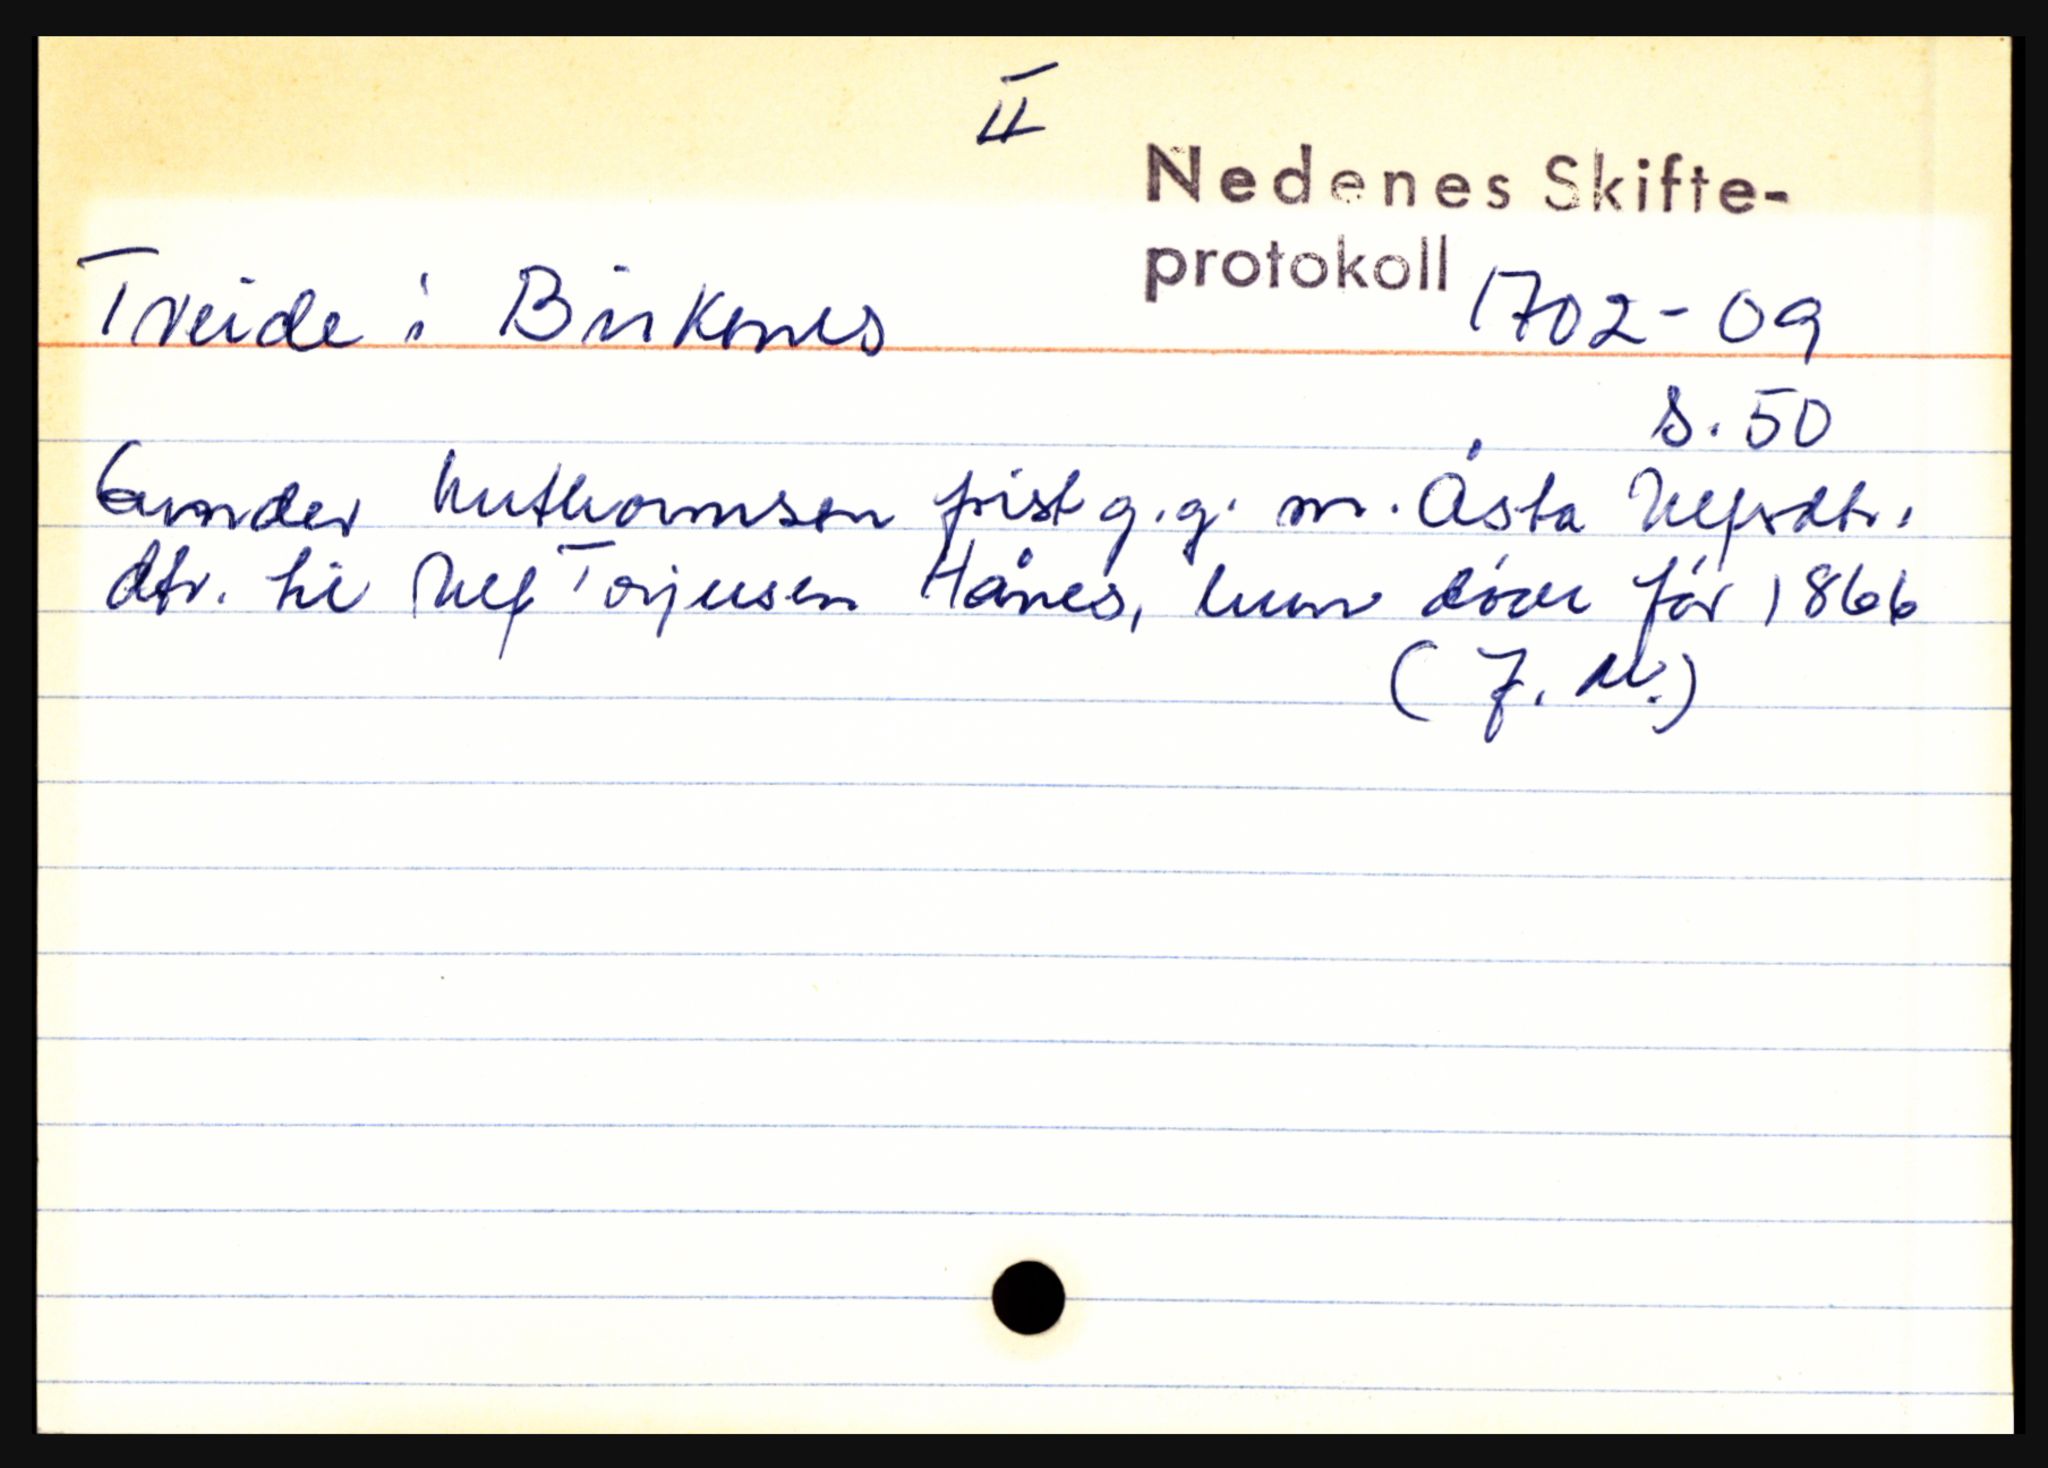 II
Nedenes Skifte-
protokoll 1702-09
Tveide i Birkenes
S. 50
Gunder Guthormsen first g.g. m. Åsta Ulfsdtr.
dtr. til Ulf Torjusen Hånes, hun døde før 1866